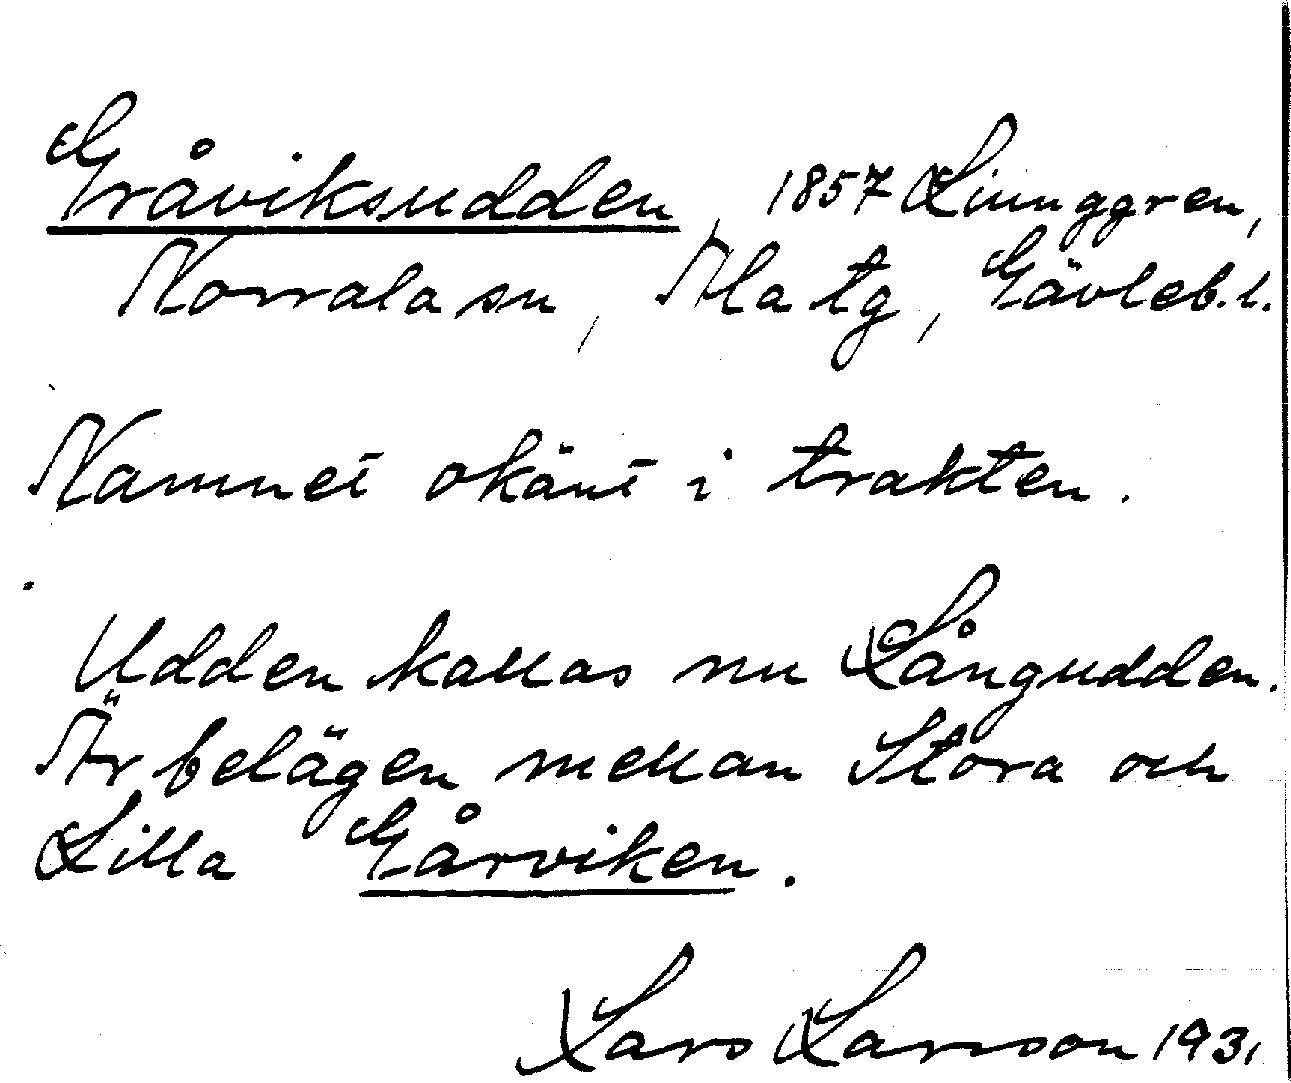 Gråviksudden, 1857 Ljunggren,
Norrala sn, Ala tg, Gävleb. l.
Namnet okänt i trakten.
Udden kallas nu Långudden.
Är belägen mellan Stora och
Lilla Gårviken.
Lars Larsson 1931